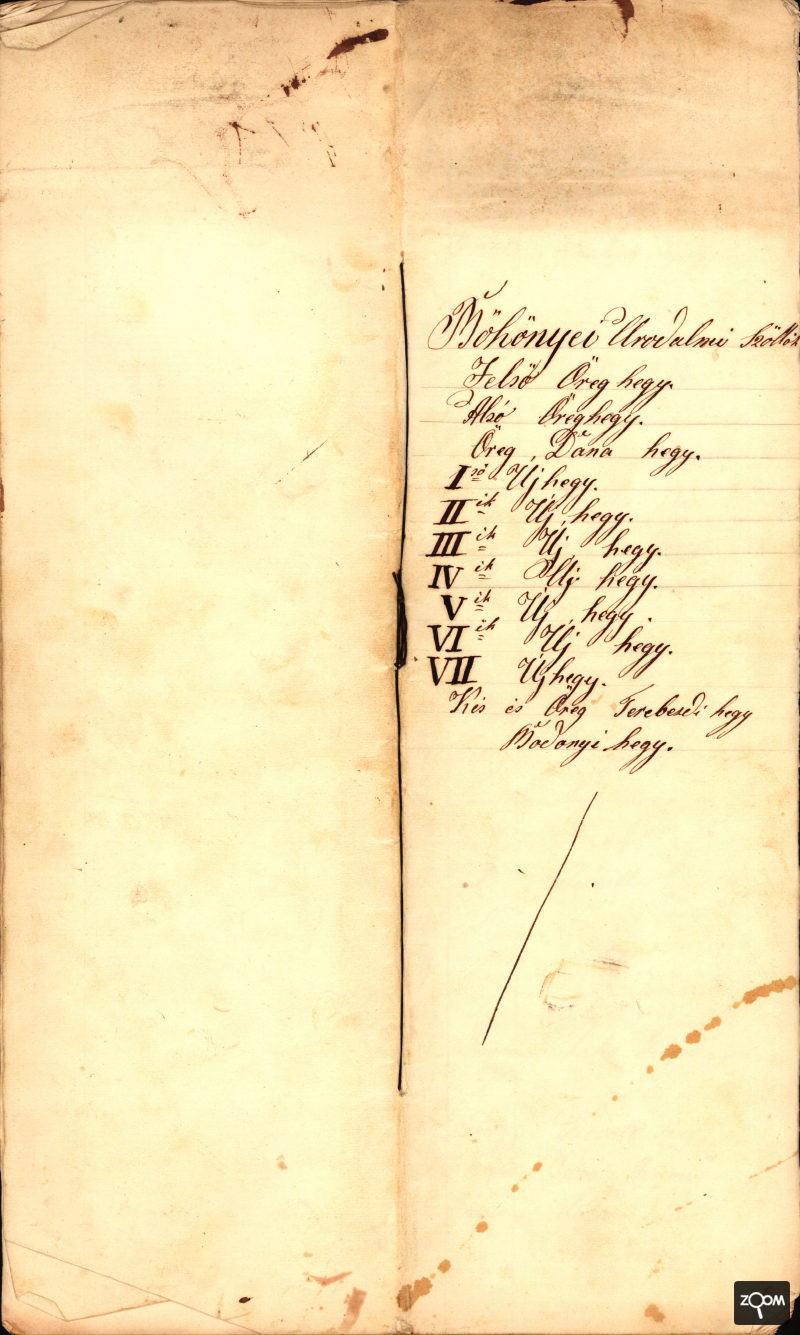 Böhönyei Urodalmi Szöllök
Felsö Öreg hegy.
Alsó Öreghegy.
Öreg, Dana hegy.
I sö Ujhegy.
II ik Uj hegy.
III ik Uj hegy.
IV ik Uj hegy.
V ik Uj hegy.
VI ik Uj hegy.
VII Ujhegy.
Kis és Öreg Terebezdi hegy
Bodonyi hegy.
ZOOM